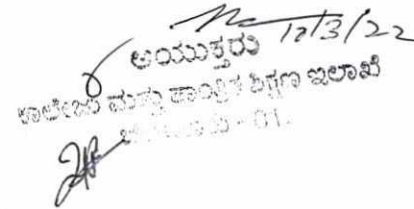 12/3/22
ಆಯುಕ್ತರು
ಕಾಲೇಜು ಮತ್ತು ತಾಂತ್ರಿಕ ಶಿಕ್ಷಣ ಇಲಾಖೆ
- 01.